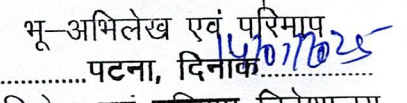 भू-अभिलेख एवं परिमाप
..........पटना, दिनांक 14/07/2025